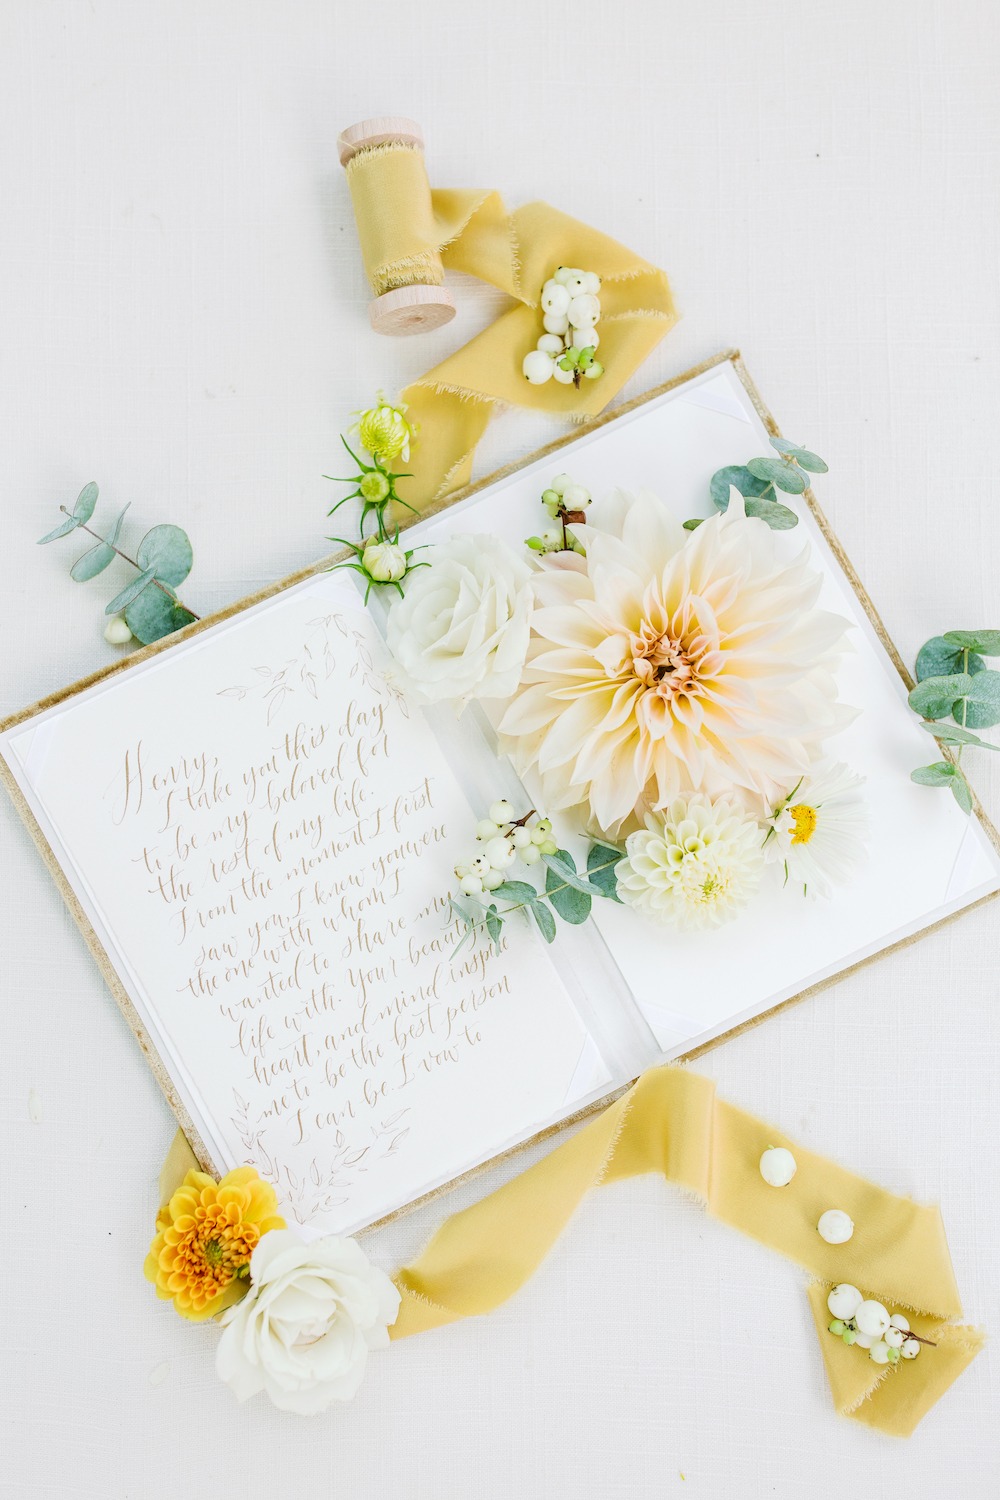 Henry,
I take you this day
to be my beloved for
the rest of my life.
From the moment I first
saw you, I knew you were
the one with whom I
wanted to share my
life with. Your beauty,
heart, and mind inspire
me to be the best person
I can be. I vow to